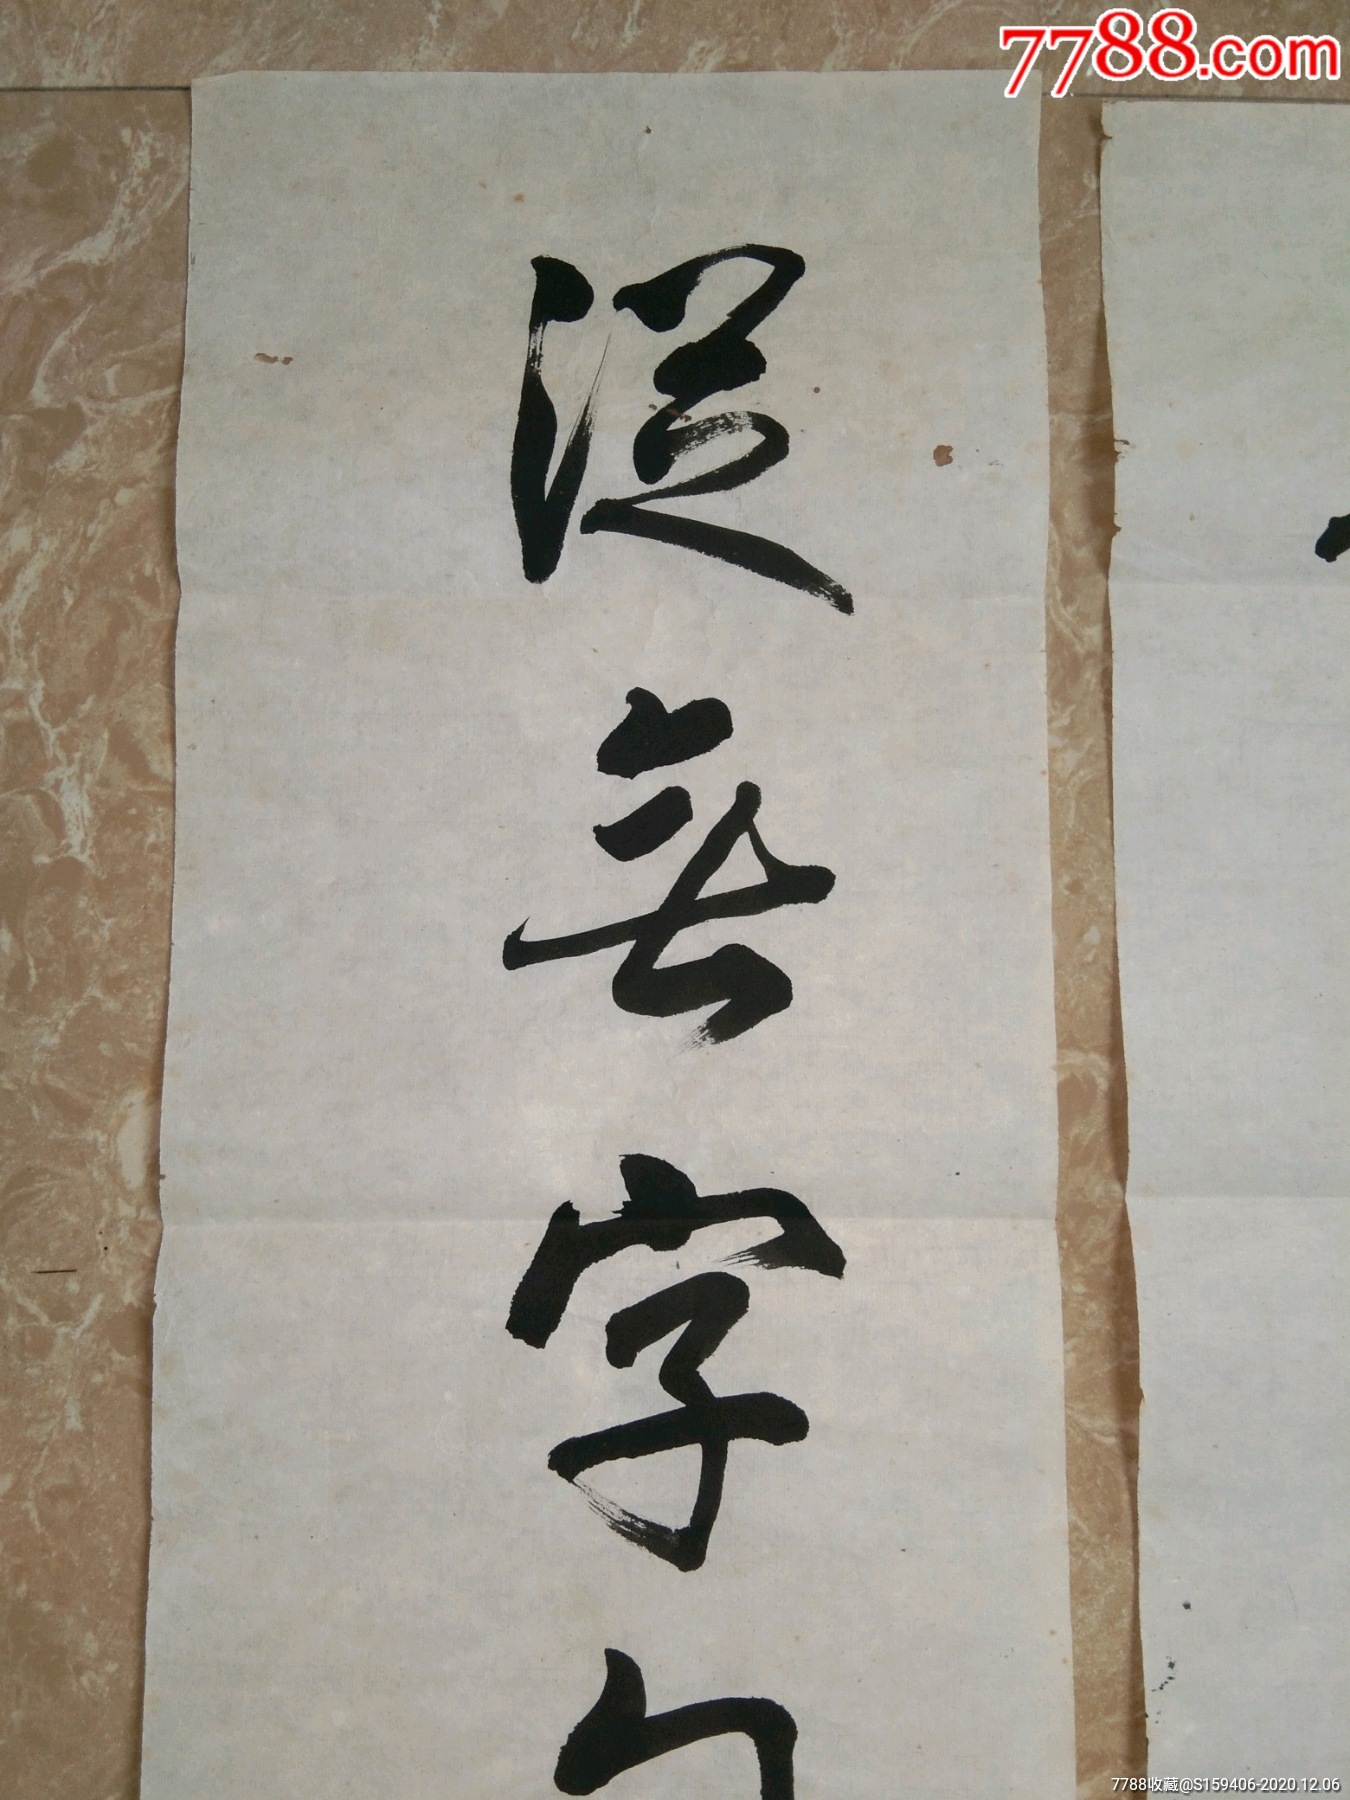 7788.com
從
無
字
7788收藏@S159406-2020.12.06